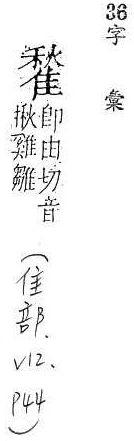 36字彙
䨂
卽由切音
揪雞雛
(隹部、V12、P44)